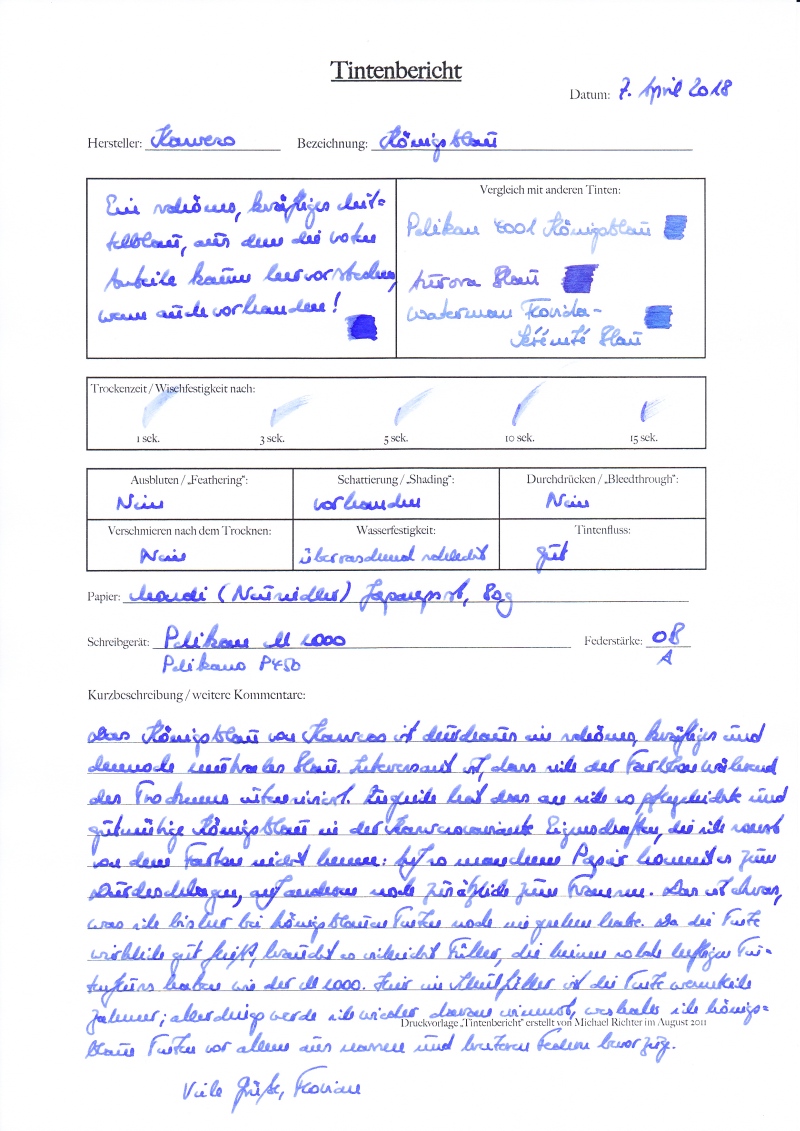 Tintenbericht
Datum: 7. April 2018
Hersteller: Kaweco Bezeichnung: Königsblau
Ein schönes, kräftiges Mit-
telblau, aus dem die roten
Anteile kaum hervorstechen,
wenn auch vorhanden!
Vergleich mit anderen Tinten:
Pelikan 4001 Königsblau
Aurora Blau
Waterman Florida-
Sérénité Blau
Trockenzeit / Wischfestigkeit nach:
1 sek. 3 sek. 5 sek. 10 sek. 15 sek.
Ausbluten / „Feathering": Schattierung / „Shading": Durchdrücken / „Bleedthrough":
Nein vorhanden Nein
Verschmieren nach dem Trocknen: Wasserfestigkeit: Tintenfluss:
Nein überraschend schlecht gut
Papier: (Neusiedler) Japanpost, 80g
Schreibgerät: Pelikan M 1000 Federstärke: OB
Pelikano P450 A
Kurzbeschreibung / weitere Kommentare:
Das Königsblau von Kaweco ist durchaus ein schönes, kräftiges und
dennoch neutrales Blau. Interessant ist, dass sich der Farbton während
des Trocknens intensiviert. Zugleich hat das an sich so pflegeleichte und
gutmütige Königsblau in der Kawecovariante Eigenschaften, die ich sonst
von dem Farbton nicht kenne: auf so manchem Papier kommt es zum
Durchschlagen, auf anderem noch zusätzlich zum Fransen. Das ist etwas,
was ich bisher bei königsblauen Tinten noch nie gesehen habe. Da die Tinte
wirklich gut fließt, braucht es vielleicht Füller, die keinen solch heftigen Tin-
tenfluss haben wie der M 1000. Hier im Schulfüller ist die Tinte wesentlich
zahmer; allerdings werde ich wieder daran erinnert, weshalb ich königs-
Druckvorlage „Tintenbericht" erstellt von Michael Richter im August 2011
blaue Tinten vor allem aus nassen und breiten Federn bevorzuge.
Viele Grüße, Florian